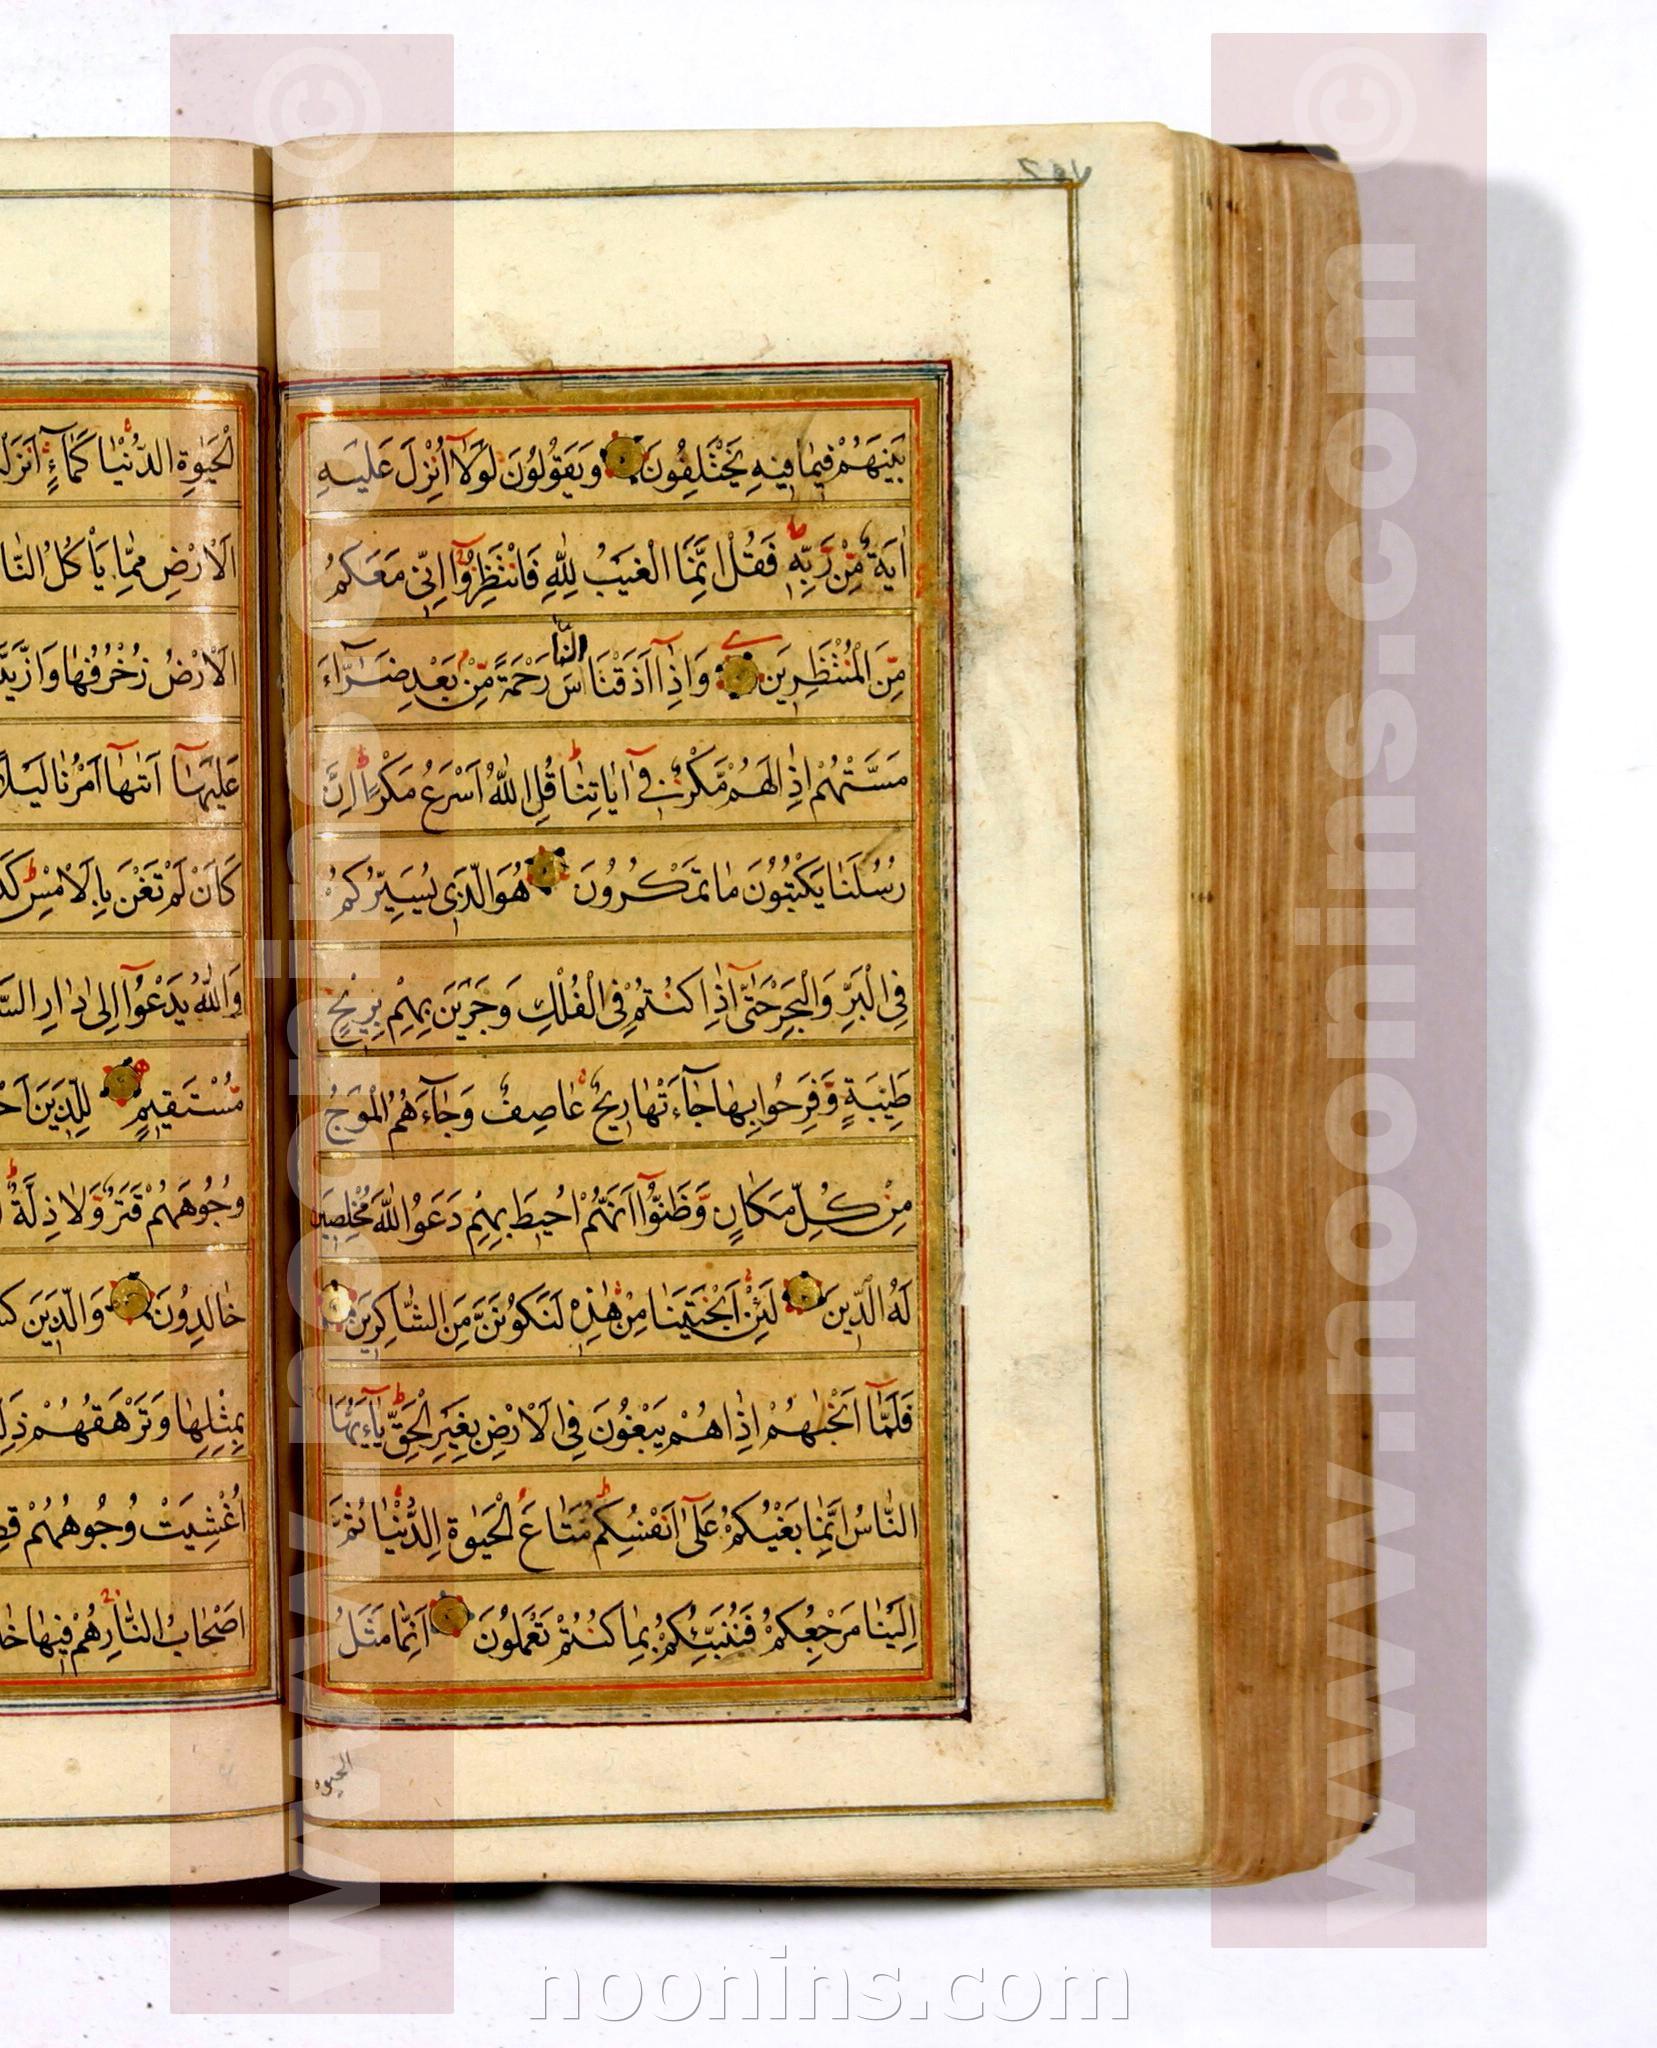 بَيْنَهُمْ فِيمَا فِيهِ يَخْتَلِفُونَ وَيَقُولُونَ لَوْلَا أُنْزِلَ عَلَيْهِ
اٰيَةٌ مِّنْ رَّبِّهٖ فَقُلْ اِنَّمَا الْغَيْبُ لِلّٰهِ فَانْتَظِرُوٓا اِنّٖي مَعَكُمْ
مِّنَ الْمُنْتَظِرٖينَ وَاِذَآ اَذَقْنَا النَّاسَ رَحْمَةً مِّنْ بَعْدِ ضَرَّآءَ
مَسَّتْهُمْ اِذَا لَهُمْ مَّكْرٌ فٖيٓ اٰيَاتِنَا قُلِ اللّٰهُ اَسْرَعُ مَكْرًا اِنَّ
رُسُلَنَا يَكْتُبُونَ مَا تَمْكُرُونَ هُوَ الَّذٖي يُسَيِّرُكُمْ
فِي الْبَرِّ وَالْبَحْرِ حَتّٰٓى اِذَا كُنْتُمْ فِي الْفُلْكِ وَجَرَيْنَ بِهِمْ بِرٖيحٍ
طَيِّبَةٍ وَّفَرِحُوا بِهَا جَآءَتْهَا رٖيحٌ عَاصِفٌ وَجَآءَهُمُ الْمَوْجُ
مِنْ كُلِّ مَكَانٍ وَّظَنُّوٓا اَنَّهُمْ اُحٖيطَ بِهِمْ دَعَوُا اللّٰهَ مُخْلِصٖينَ
لَهُ الدّٖينَ لَئِنْ اَنْجَيْتَنَا مِنْ هٰذِهٖ لَنَكُونَنَّ مِنَ الشَّاكِرٖينَ
فَلَمَّآ اَنْجٰىهُمْ اِذَا هُمْ يَبْغُونَ فِي الْاَرْضِ بِغَيْرِ الْحَقِّ يَآ اَيُّهَا
النَّاسُ اِنَّمَا بَغْيُكُمْ عَلٰٓى اَنْفُسِكُمْ مَتَاعَ الْحَيٰوةِ الدُّنْيَا ثُمَّ
اِلَيْنَا مَرْجِعُكُمْ فَنُنَبِّئُكُمْ بِمَا كُنْتُمْ تَعْمَلُونَ اِنَّمَا مَثَلُ
الحيوه
الْحَيٰوةِ الدُّنْيَا كَمَآءٍ اَنْزَلْ
الْاَرْضِ مِمَّا يَأْكُلُ النَّا
الْاَرْضُ زُخْرُفَهَا وَازَّيَّ
عَلَيْهَآ اَتٰىهَآ اَمْرُنَا لَيْلًا
كَاَنْ لَمْ تَغْنَ بِالْاَمْسِ كَذ
وَاللّٰهُ يَدْعُوٓا اِلٰى دَارِ السَّ
مُسْتَقٖيمٍ لِلَّذٖينَ اَحْ
وُجُوهَهُمْ قَتَرٌ وَّلَا ذِلَّةٌ
خَالِدُونَ وَالَّذٖينَ كَ
بِمِثْلِهَا وَتَرْهَقُهُمْ ذِلَّ
اُغْشِيَتْ وُجُوهُهُمْ قِط
اَصْحَابُ النَّارِ هُمْ فٖيهَا خَا
www.noonins.com ©
www.noonins.com ©
noonins.com